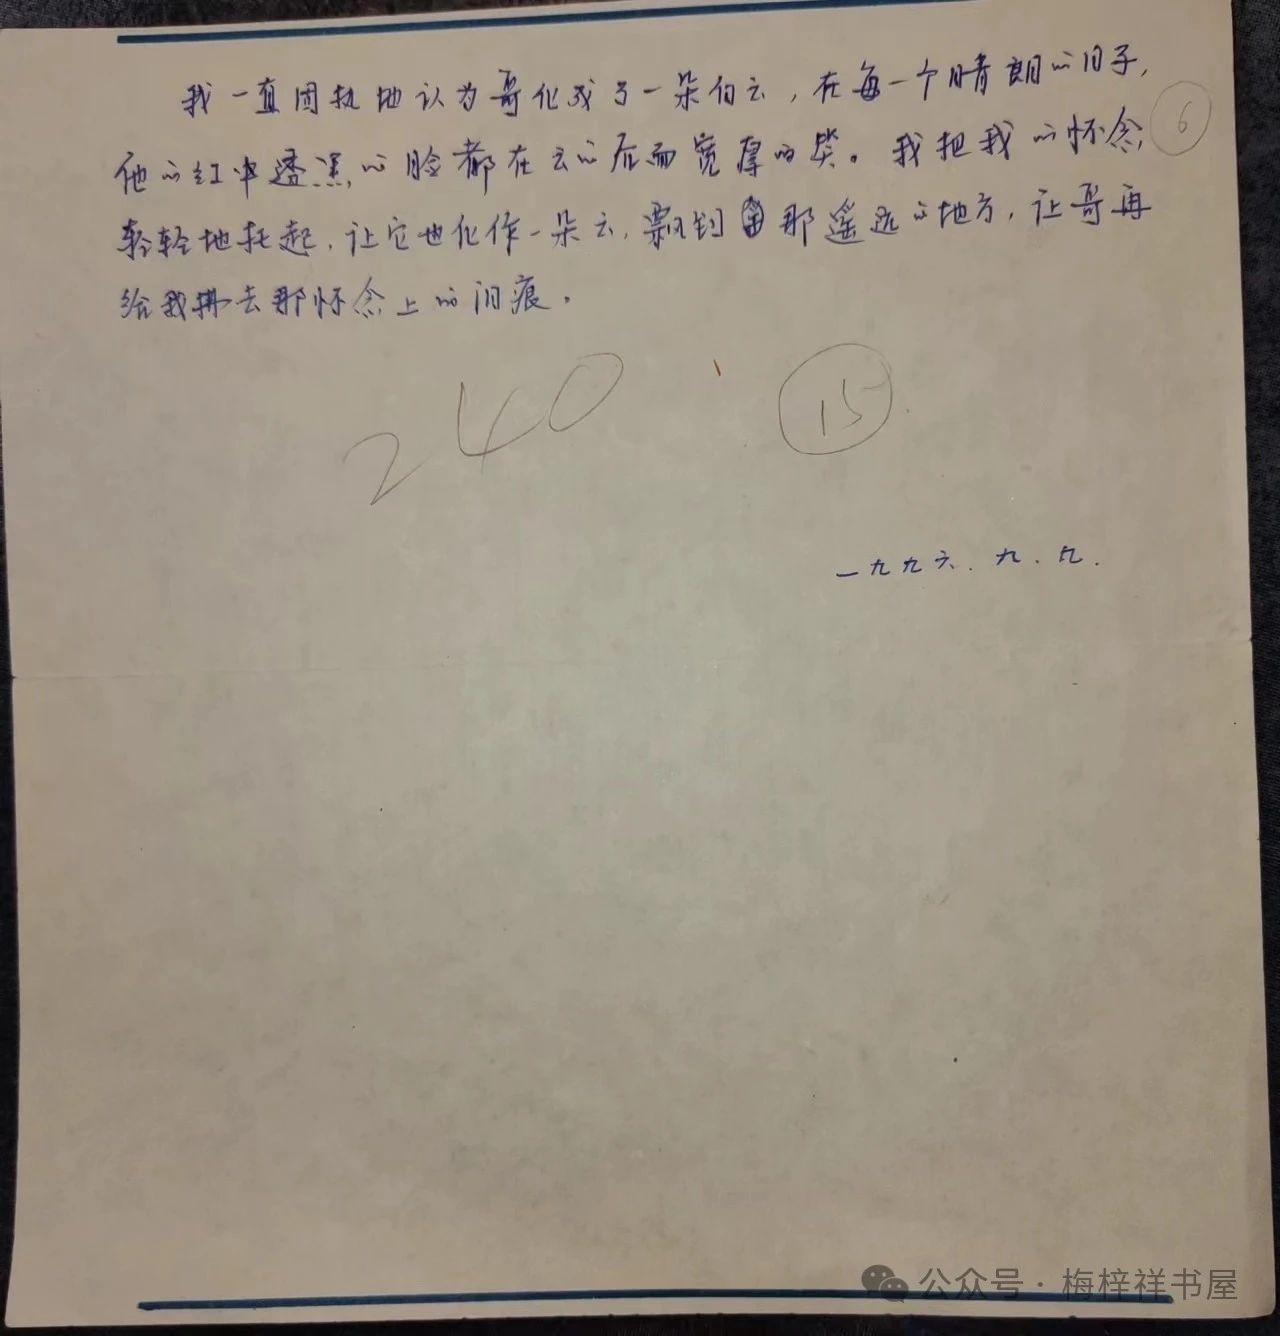 我一直固执地认为哥化成了一朵白云，在每一个晴朗的日子，
他的红中透黑的脸都在云的后面宽厚的笑。我把我的怀念
6
轻轻地托起，让它也化作一朵云，飘到那遥远的地方，让哥再
给我拂去那怀念上的泪痕。
240
15
一九九六.九.九.
公众号·梅梓祥书屋